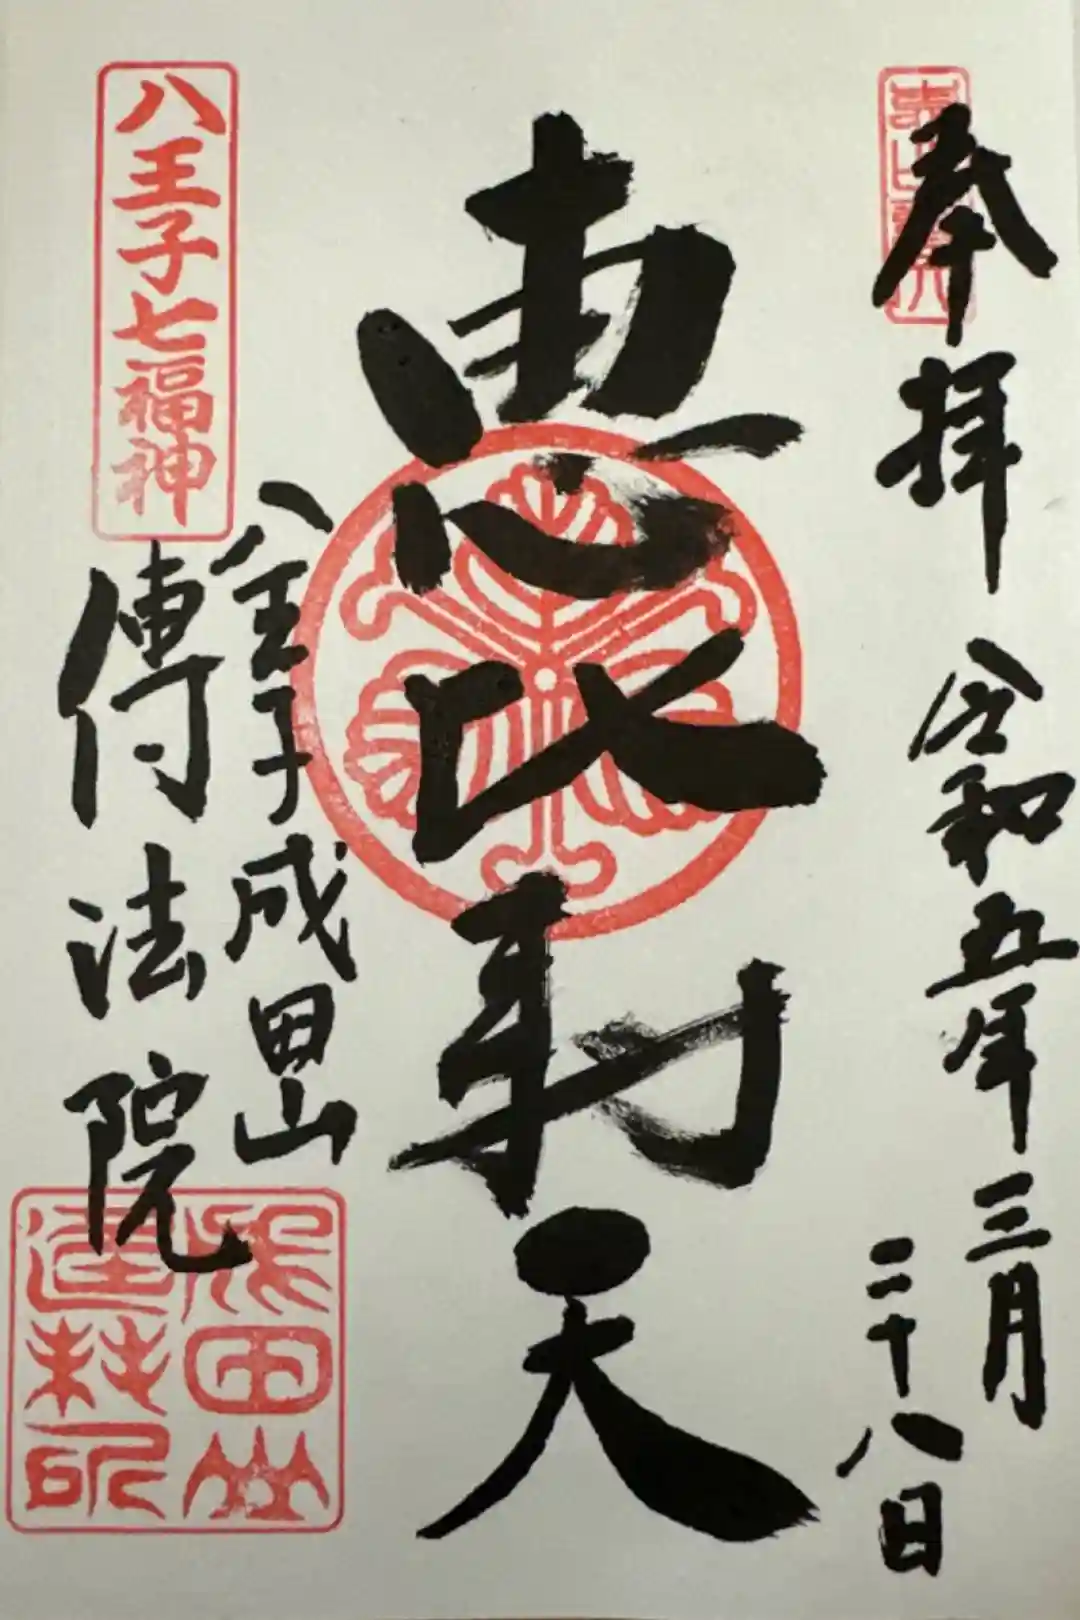 奉拝
令和五年三月
二十八日
恵比寿天
八王子成田山
傳法院
八王子七福神